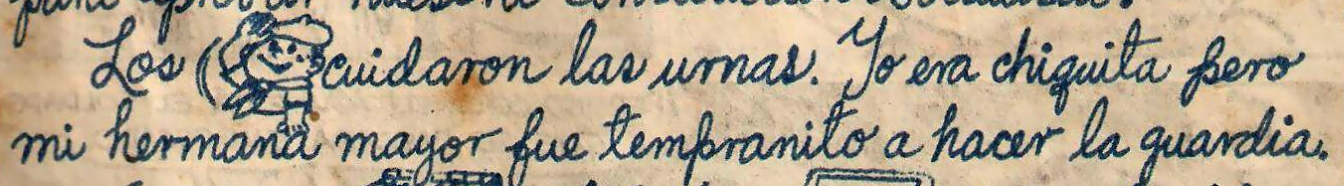 para aprobar nuestra
Los ( cuidaron las urnas. Yo era chiquita pero
mi hermana mayor fue tempranito a hacer la guardia.